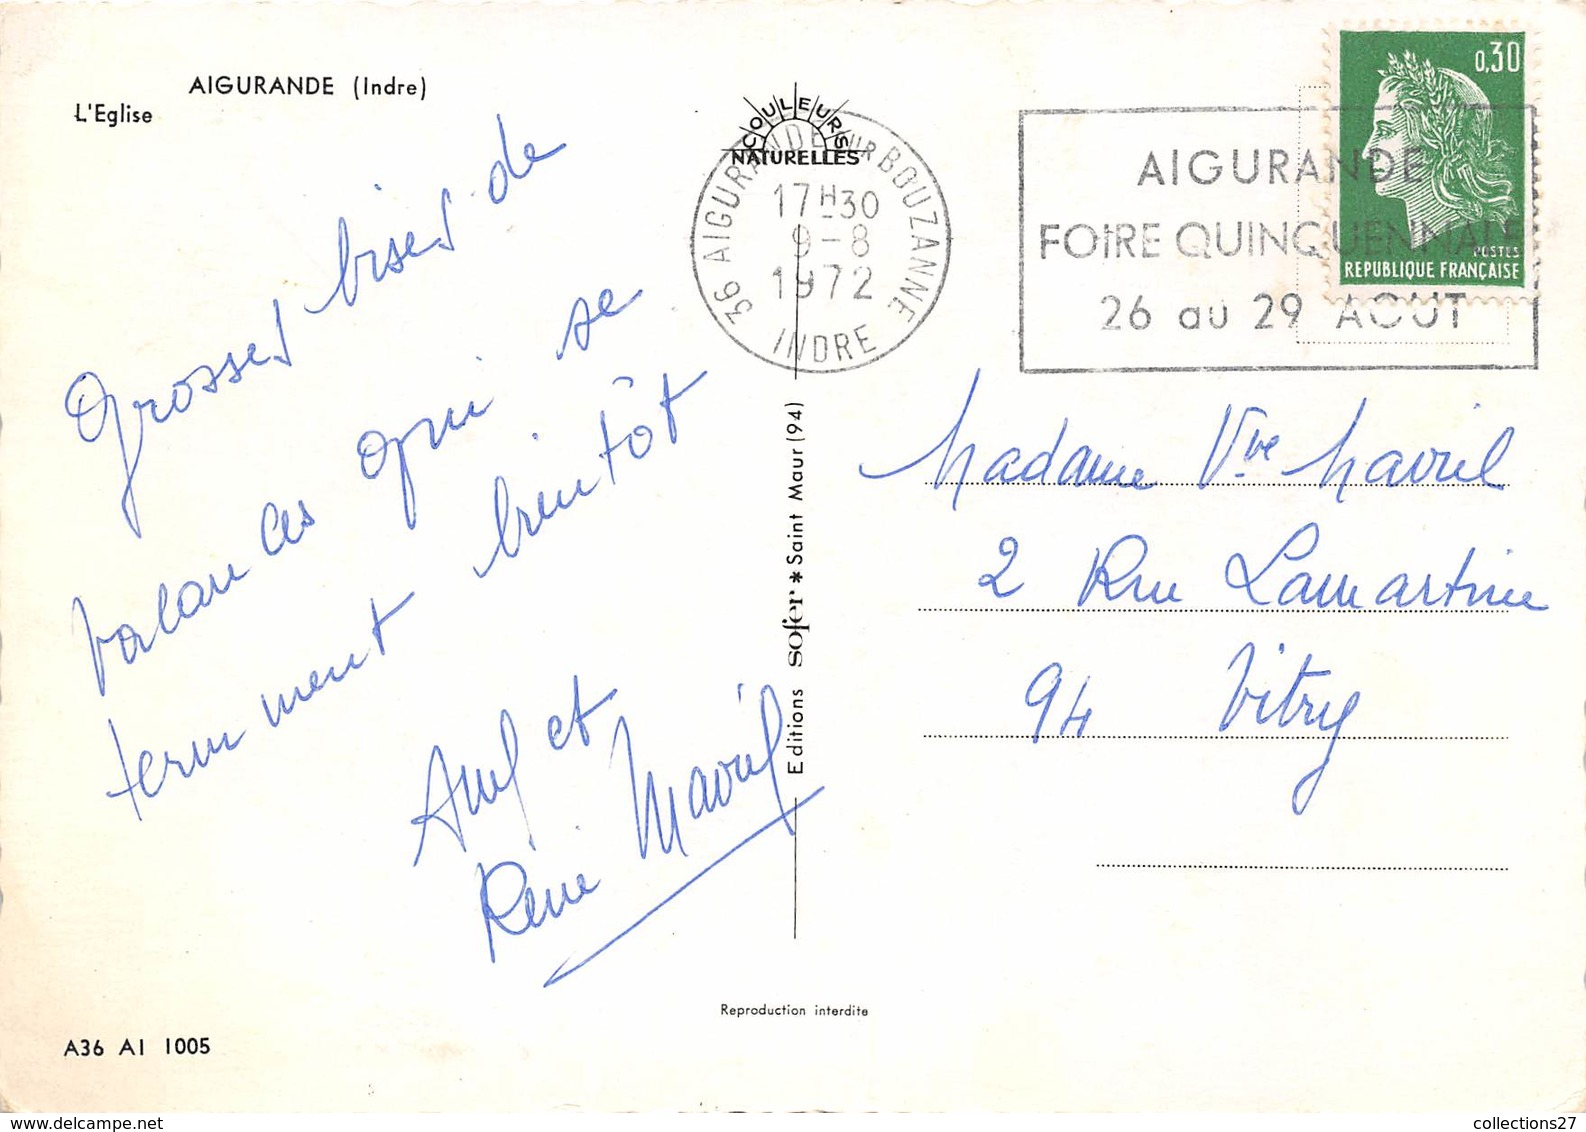 AIGURANDE (Indre)
L'Eglise
Grosses bises de
valances qui se
terminent bientôt
et
René Mavril
A36 AI 1005
COULEURS
NATURELLES
36 AIGURANDE sur BOUZANNE
17H30
9-8
1972
INDRE
Editions sofer * Saint Maur (94)
Reproduction interdite
AIGURANDE
FOIRE QUINQUENNALE
26 au 29 AOUT
0,30
POSTES
REPUBLIQUE FRANÇAISE
Madame Vve Mavril
2 Rue Lamartine
94 Vitry
collections27